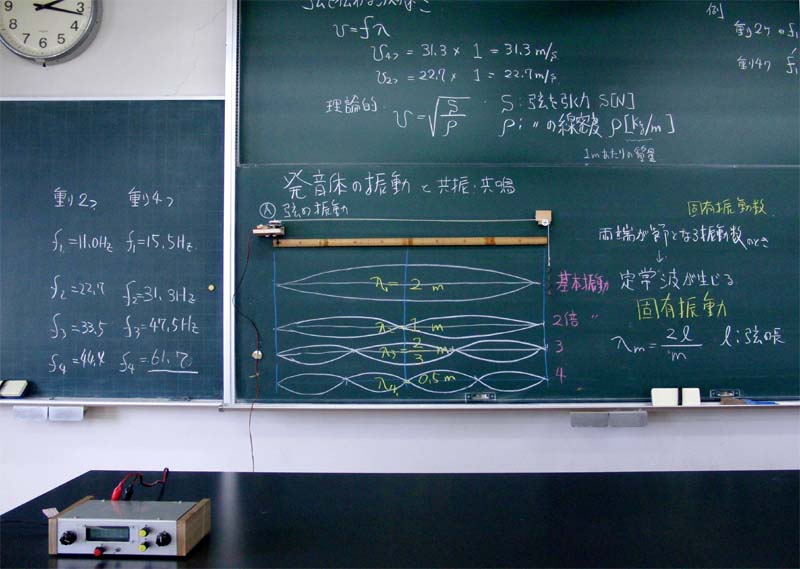 重り2つ 重り4つ
f₁=11.0Hz f₁=15.5Hz
f₂=22.7 f₂=31.3Hz
f₃=33.5 f₃=47.5Hz
f₄=44.4 f₄=61.7
v=fλ
v₄つ = 31.3 × 1 = 31.3 m/s
v₂つ = 22.7 × 1 = 22.7 m/s
理論的 v=√(S/ρ) S:弦を引く力 S[N]
ρ:〃の線密度 ρ[kg/m]
1mあたりの質量
例
重り2つの f₁
重り4つ f₁
発音体の振動と共振・共鳴
Ⓐ弦の振動
λ₁=2 m 基本振動
λ₂=1 m 2倍 〃
λ₃=2/3 m 3
λ₄=0.5 m 4
固有振動数
両端が節となる振動数のとき
↓
定常波が生じる
固有振動
λm=2l/m l:弦の長